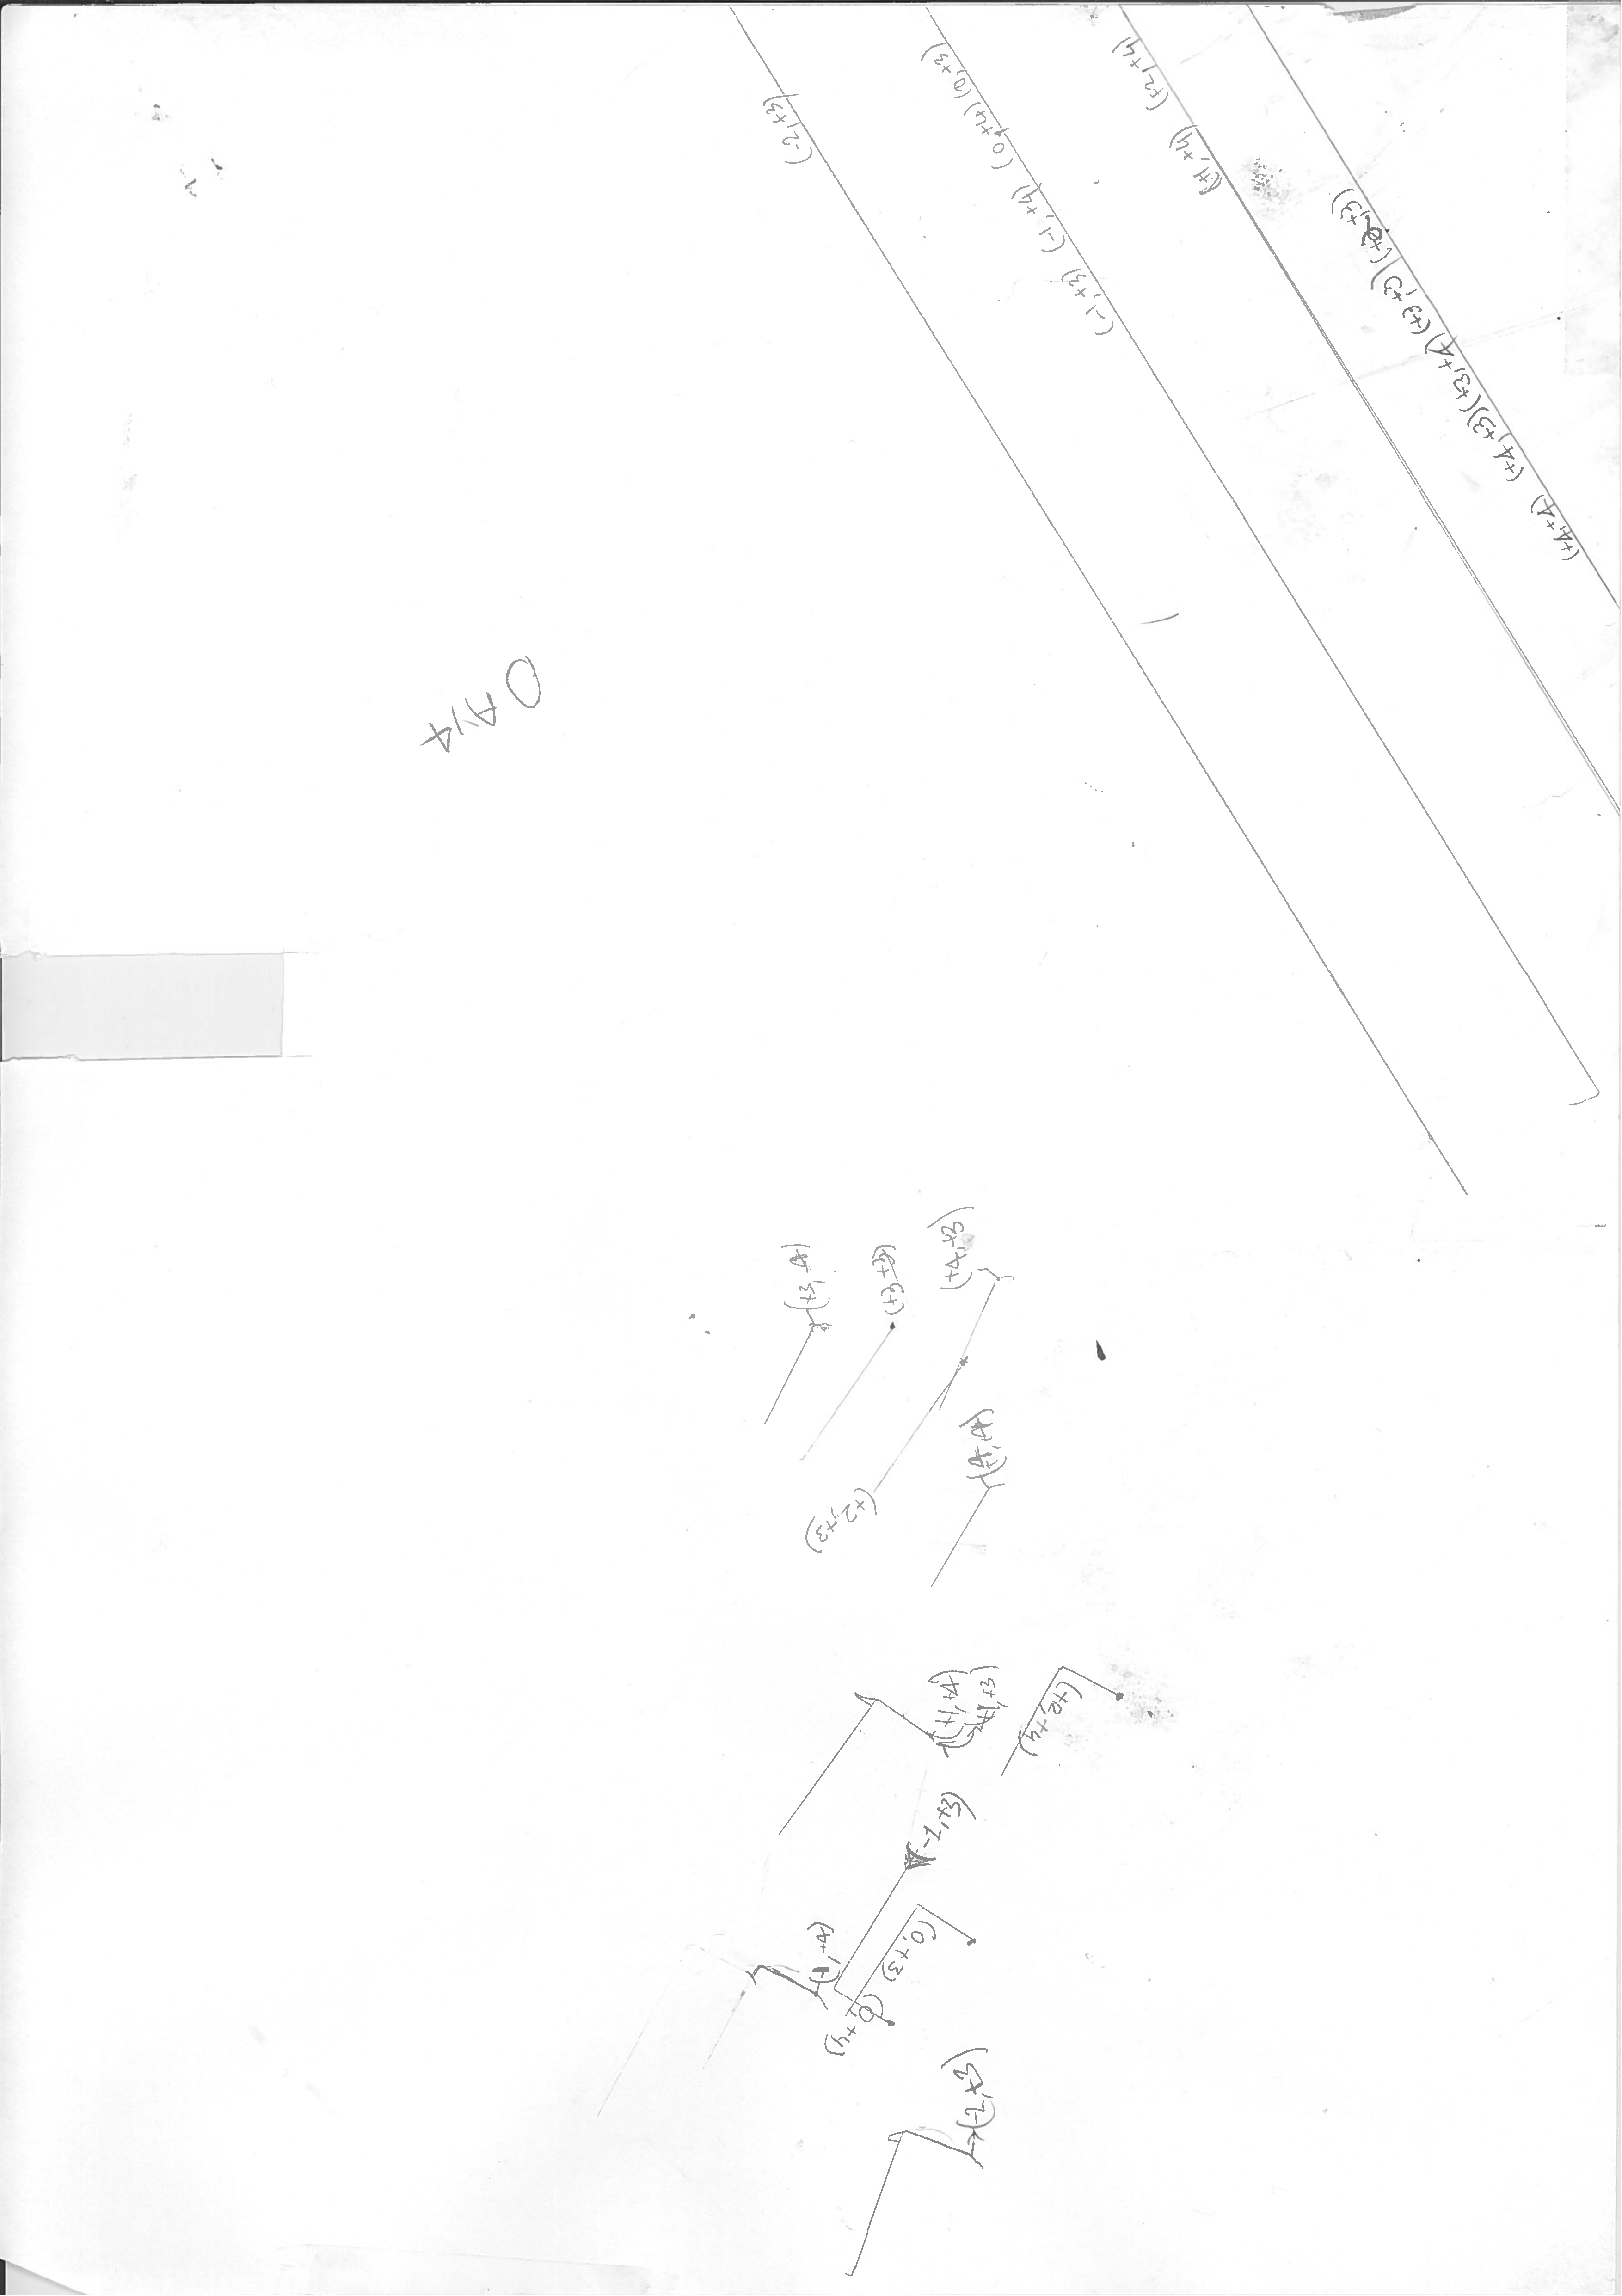 (-2,+3)
(-1,+3) (-1,+4) (0,+4) (0,+3)
(+1,+4) (+2,+4)
(+4,+4) (+4,+3) (+3,+4) (+3,+3) (+2,+3)
DAY4
(+3,+4)
(+3,+3)
(+4,+3)
(+2,+3)
(+4,+4)
(+1,+4)
(+1,+3)
(+2,+4)
(-1,+3)
(0,+3)
(0,+4)
(-2,+3)